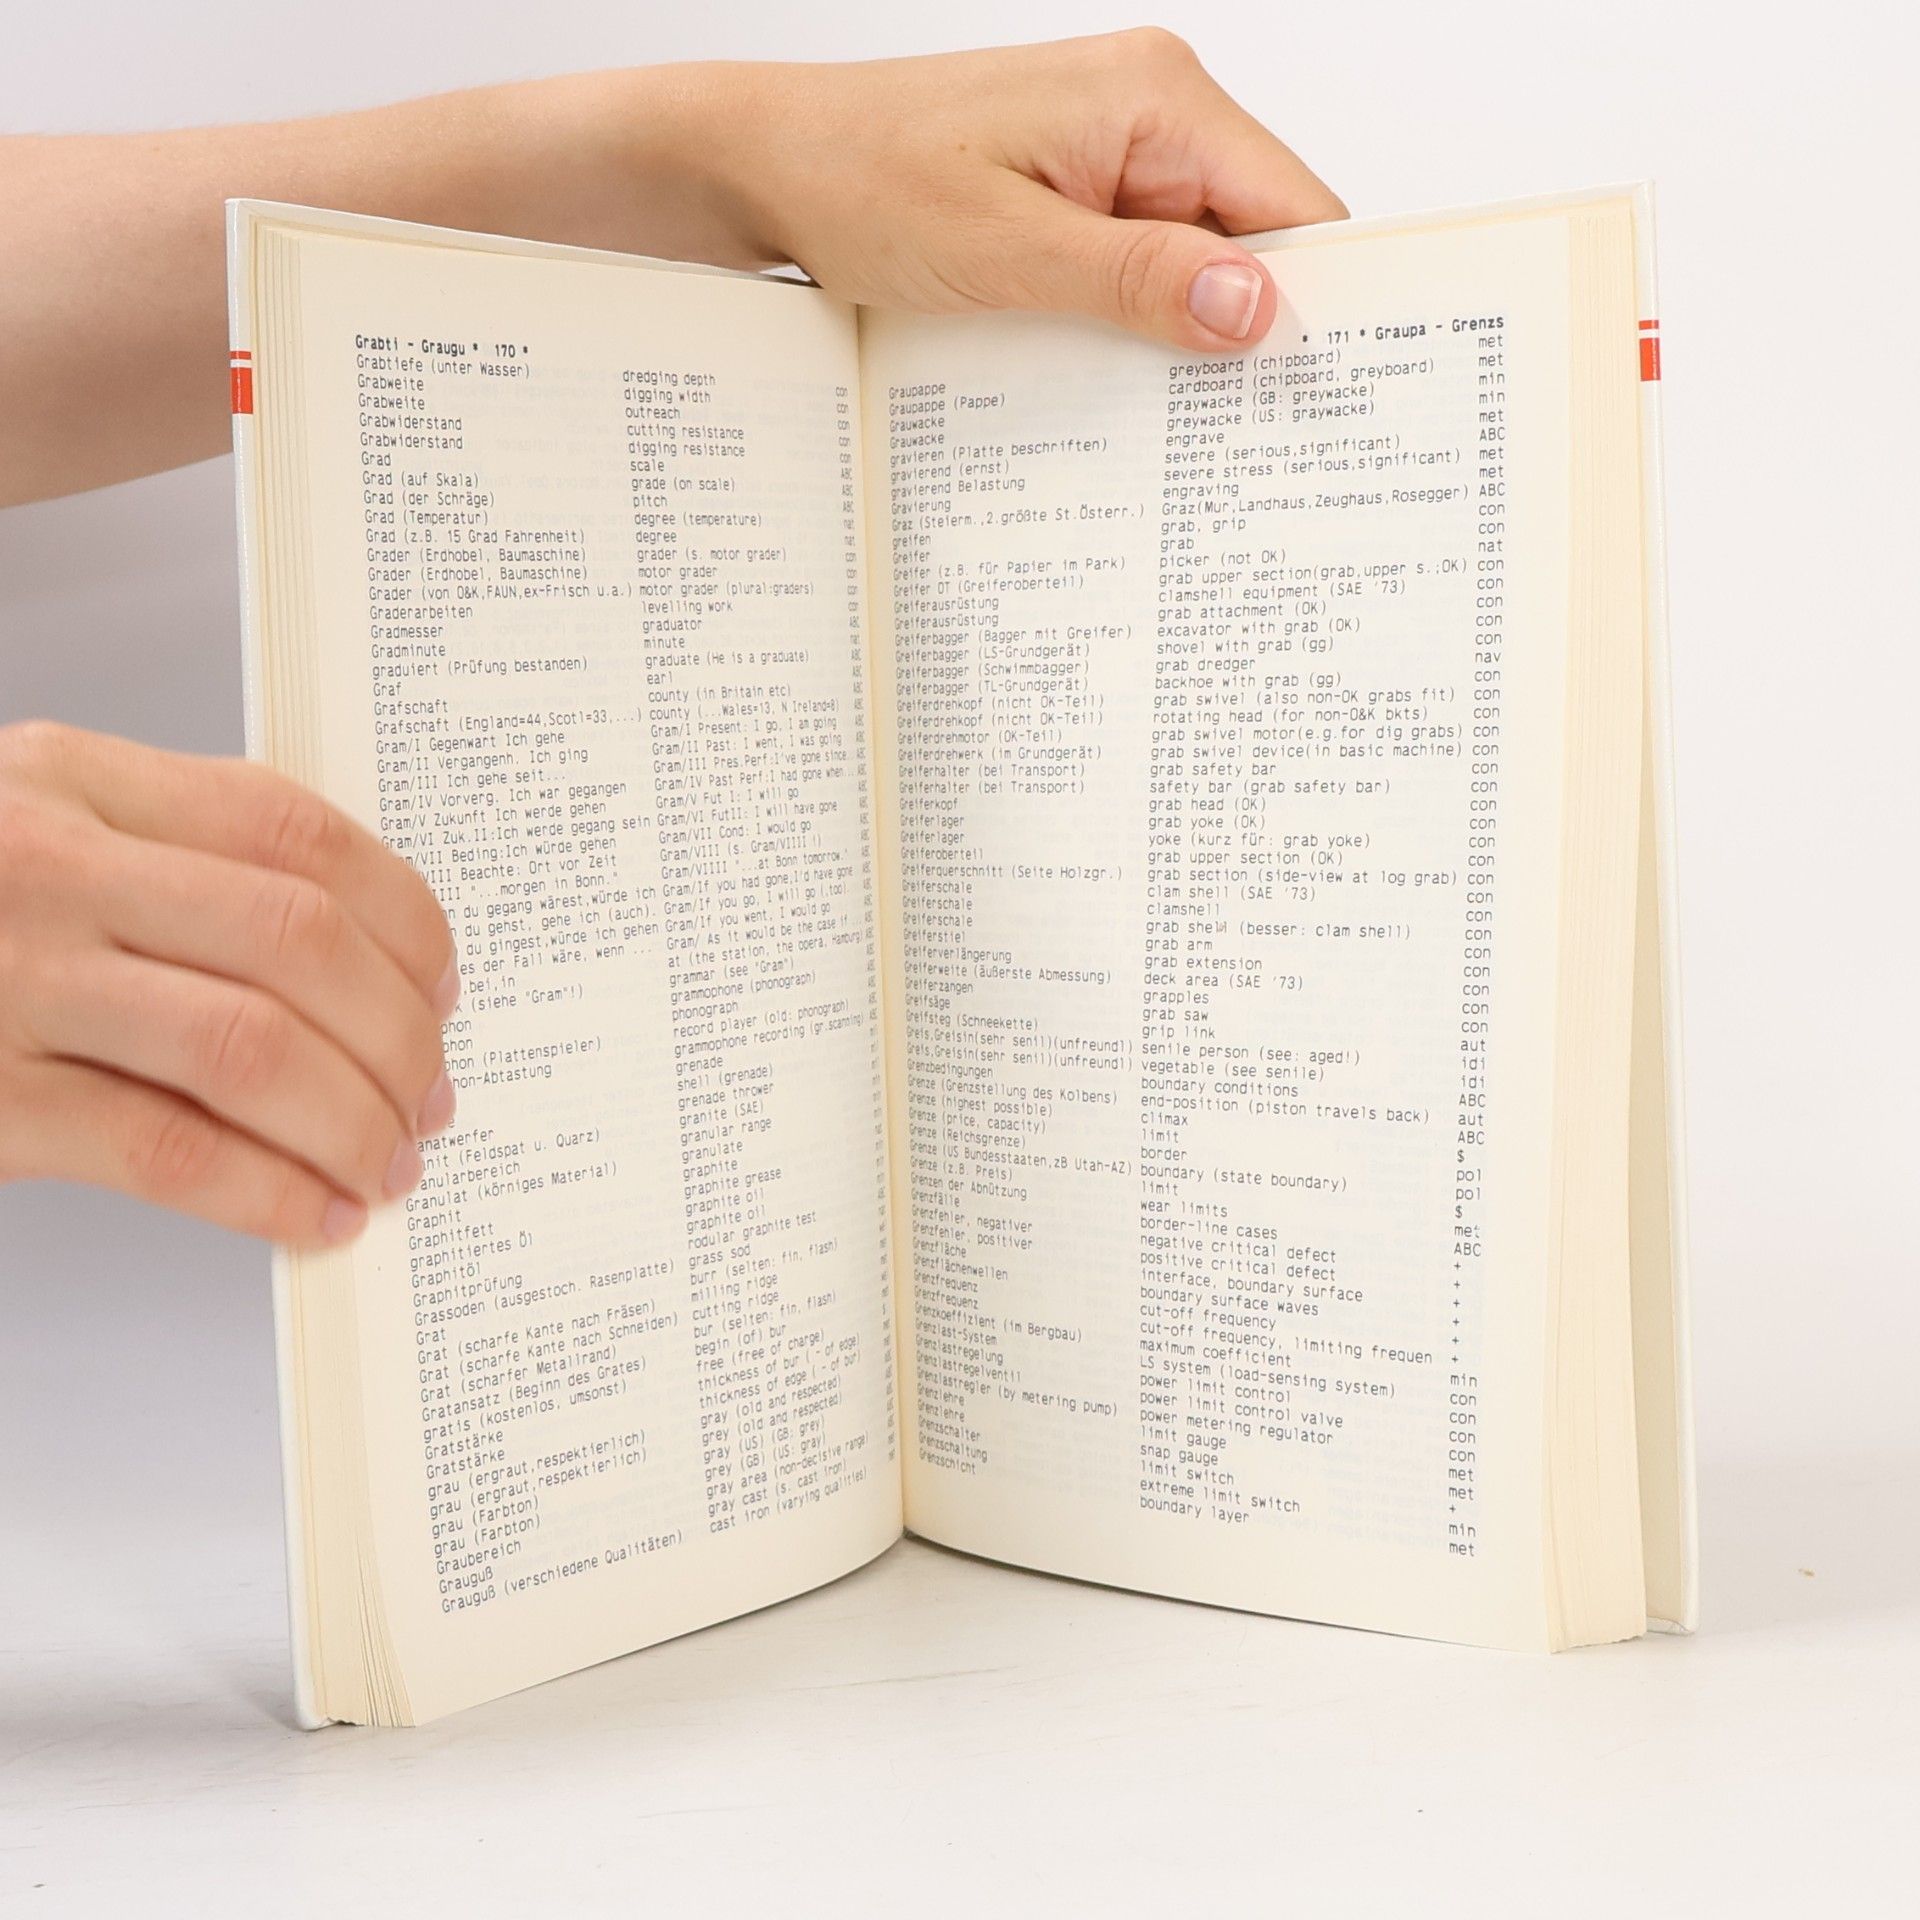 Grabti - Graugu * 170 *
Grabtiefe (unter Wasser) dredging depth con
Grabweite digging width con
Grabweite outreach con
Grabwiderstand cutting resistance con
Grabwiderstand digging resistance con
Grad scale ABC
Grad (auf Skala) grade (on scale) ABC
Grad (der Schräge) pitch ABC
Grad (Temperatur) degree (temperature) nat
Grad (z.B. 15 Grad Fahrenheit) degree nat
Grader (Erdhobel, Baumaschine) grader (s. motor grader) con
Grader (Erdhobel, Baumaschine) motor grader con
Grader (von O&K,FAUN,ex-Frisch u.a.) motor grader (plural:graders) con
Graderarbeiten levelling work con
Gradmesser graduator ABC
Gradminute minute nat
graduiert (Prüfung bestanden) graduate (He is a graduate) ABC
Graf earl ABC
Grafschaft county (in Britain etc) ABC
Grafschaft (England=44,Scotl=33,...) county (...Wales=13, N Ireland=8) ABC
Gram/I Gegenwart Ich gehe Gram/I Present: I go, I am going ABC
Gram/II Vergangenh. Ich ging Gram/II Past: I went, I was going ABC
Gram/III Ich gehe seit... Gram/III Pres.Perf:I've gone since... ABC
Gram/IV Vorverg. Ich war gegangen Gram/IV Past Perf:I had gone when... ABC
Gram/V Zukunft Ich werde gehen Gram/V Fut I: I will go ABC
Gram/VI Zuk.II:Ich werde gegang sein Gram/VI FutII: I will have gone ABC
m/VII Beding:Ich würde gehen Gram/VII Cond: I would go ABC
VIII Beachte: Ort vor Zeit Gram/VIII (s. Gram/VIIII !) ABC
IIII "...morgen in Bonn." Gram/VIIII "...at Bonn tomorrow." ABC
n du gegang wärest,würde ich Gram/If you had gone,I'd have gone ABC
du gehst, gehe ich (auch). Gram/If you go, I will go (,too). ABC
du gingest,würde ich gehen Gram/If you went, I would go ABC
es der Fall wäre, wenn ... Gram/ As it would be the case if ... ABC
,bei,in at (the station, the opera, Hamburg) ABC
k (siehe "Gram"!) grammar (see "Gram") ABC
phon grammophone (phonograph) ABC
phon phonograph ABC
phon (Plattenspieler) record player (old: phonograph) ABC
hon-Abtastung grammophone recording (gr.scanning)
grenade
e shell (grenade)
anatwerfer grenade thrower
nit (Feldspat u. Quarz) granite (SAE)
anularbereich granular range
Granulat (körniges Material) granulate
Graphit graphite
Graphitfett graphite grease
graphitiertes Öl graphite oil
Graphitöl graphite oil
Graphitprüfung rodular graphite test
Grassoden (ausgestoch. Rasenplatte) grass sod
Grat burr (selten: fin, flash)
Grat (scharfe Kante nach Fräsen) milling ridge
Grat (scharfe Kante nach Schneiden) cutting ridge
Grat (scharfer Metallrand) bur (selten: fin, flash)
Gratansatz (Beginn des Grates) begin (of) bur
gratis (kostenlos, umsonst) free (free of charge)
Gratstärke thickness of bur ( - of edge)
Gratstärke thickness of edge ( - of bur)
grau (ergraut,respektierlich) gray (old and respected)
grau (ergraut,respektierlich) grey (old and respected)
grau (Farbton) gray (US) (GB: grey)
grau (Farbton) grey (GB) (US: gray)
Graubereich gray area (non-decisive range)
Grauguß gray cast (s. cast iron)
Grauguß (verschiedene Qualitäten) cast iron (varying qualities)
* 171 * Graupa - Grenzs
Graupappe greyboard (chipboard) met
Graupappe (Pappe) cardboard (chipboard, greyboard) met
Grauwacke graywacke (GB: greywacke) min
Grauwacke greywacke (US: graywacke) min
gravieren (Platte beschriften) engrave met
gravierend (ernst) severe (serious,significant) ABC
gravierend Belastung severe stress (serious,significant) met
Gravierung engraving met
Graz (Steierm.,2.größte St.Österr.) Graz(Mur,Landhaus,Zeughaus,Rosegger) ABC
greifen grab, grip con
Greifer grab con
Greifer (z.B. für Papier im Park) picker (not OK) nat
Greifer OT (Greiferoberteil) grab upper section(grab,upper s.;OK) con
Greiferausrüstung clamshell equipment (SAE '73) con
Greiferausrüstung grab attachment (OK) con
Greiferbagger (Bagger mit Greifer) excavator with grab (OK) con
Greiferbagger (LS-Grundgerät) shovel with grab (gg) con
Greiferbagger (Schwimmbagger) grab dredger nav
Greiferbagger (TL-Grundgerät) backhoe with grab (gg) con
Greiferdrehkopf (nicht OK-Teil) grab swivel (also non-OK grabs fit) con
Greiferdrehkopf (nicht OK-Teil) rotating head (for non-O&K bkts) con
Greiferdrehmotor (OK-Teil) grab swivel motor(e.g.for dig grabs) con
Greiferdrehwerk (im Grundgerät) grab swivel device(in basic machine) con
Greiferhalter (bei Transport) grab safety bar con
Greiferhalter (bei Transport) safety bar (grab safety bar) con
Greiferkopf grab head (OK) con
Greiferlager grab yoke (OK) con
Greiferlager yoke (kurz für: grab yoke) con
Greiferoberteil grab upper section (OK) con
Greiferquerschnitt (Seite Holzgr.) grab section (side-view at log grab) con
Greiferschale clam shell (SAE '73) con
Greiferschale clamshell con
Greiferschale grab shell (besser: clam shell) con
Greiferstiel grab arm con
Greiferverlängerung grab extension con
Greiferweite (äußerste Abmessung) deck area (SAE '73) con
Greiferzangen grapples con
Greifsäge grab saw con
Greifsteg (Schneekette) grip link aut
Greis,Greisin(sehr senil)(unfreundl) senile person (see: aged!) idi
Greis,Greisin(sehr senil)(unfreundl) vegetable (see senile) idi
Grenzbedingungen boundary conditions ABC
Grenze (Grenzstellung des Kolbens) end-position (piston travels back) aut
Grenze (highest possible) climax ABC
Grenze (price, capacity) limit $
Grenze (Reichsgrenze) border pol
Grenze (US Bundesstaaten,zB Utah-AZ) boundary (state boundary) pol
Grenze (z.B. Preis) limit $
Grenzen der Abnützung wear limits met
Grenzfälle border-line cases ABC
Grenzfehler, negativer negative critical defect +
Grenzfehler, positiver positive critical defect +
Grenzfläche interface, boundary surface +
Grenzflächenwellen boundary surface waves +
Grenzfrequenz cut-off frequency +
Grenzfrequenz cut-off frequency, limiting frequen +
Grenzkoeffizient (im Bergbau) maximum coefficient min
Grenzlast-System LS system (load-sensing system) con
Grenzlastregelung power limit control con
Grenzlastregelventil power limit control valve con
Grenzlastregler (by metering pump) power metering regulator con
Grenzlehre limit gauge met
Grenzlehre snap gauge met
Grenzschalter limit switch +
Grenzschaltung extreme limit switch min
Grenzschicht boundary layer met